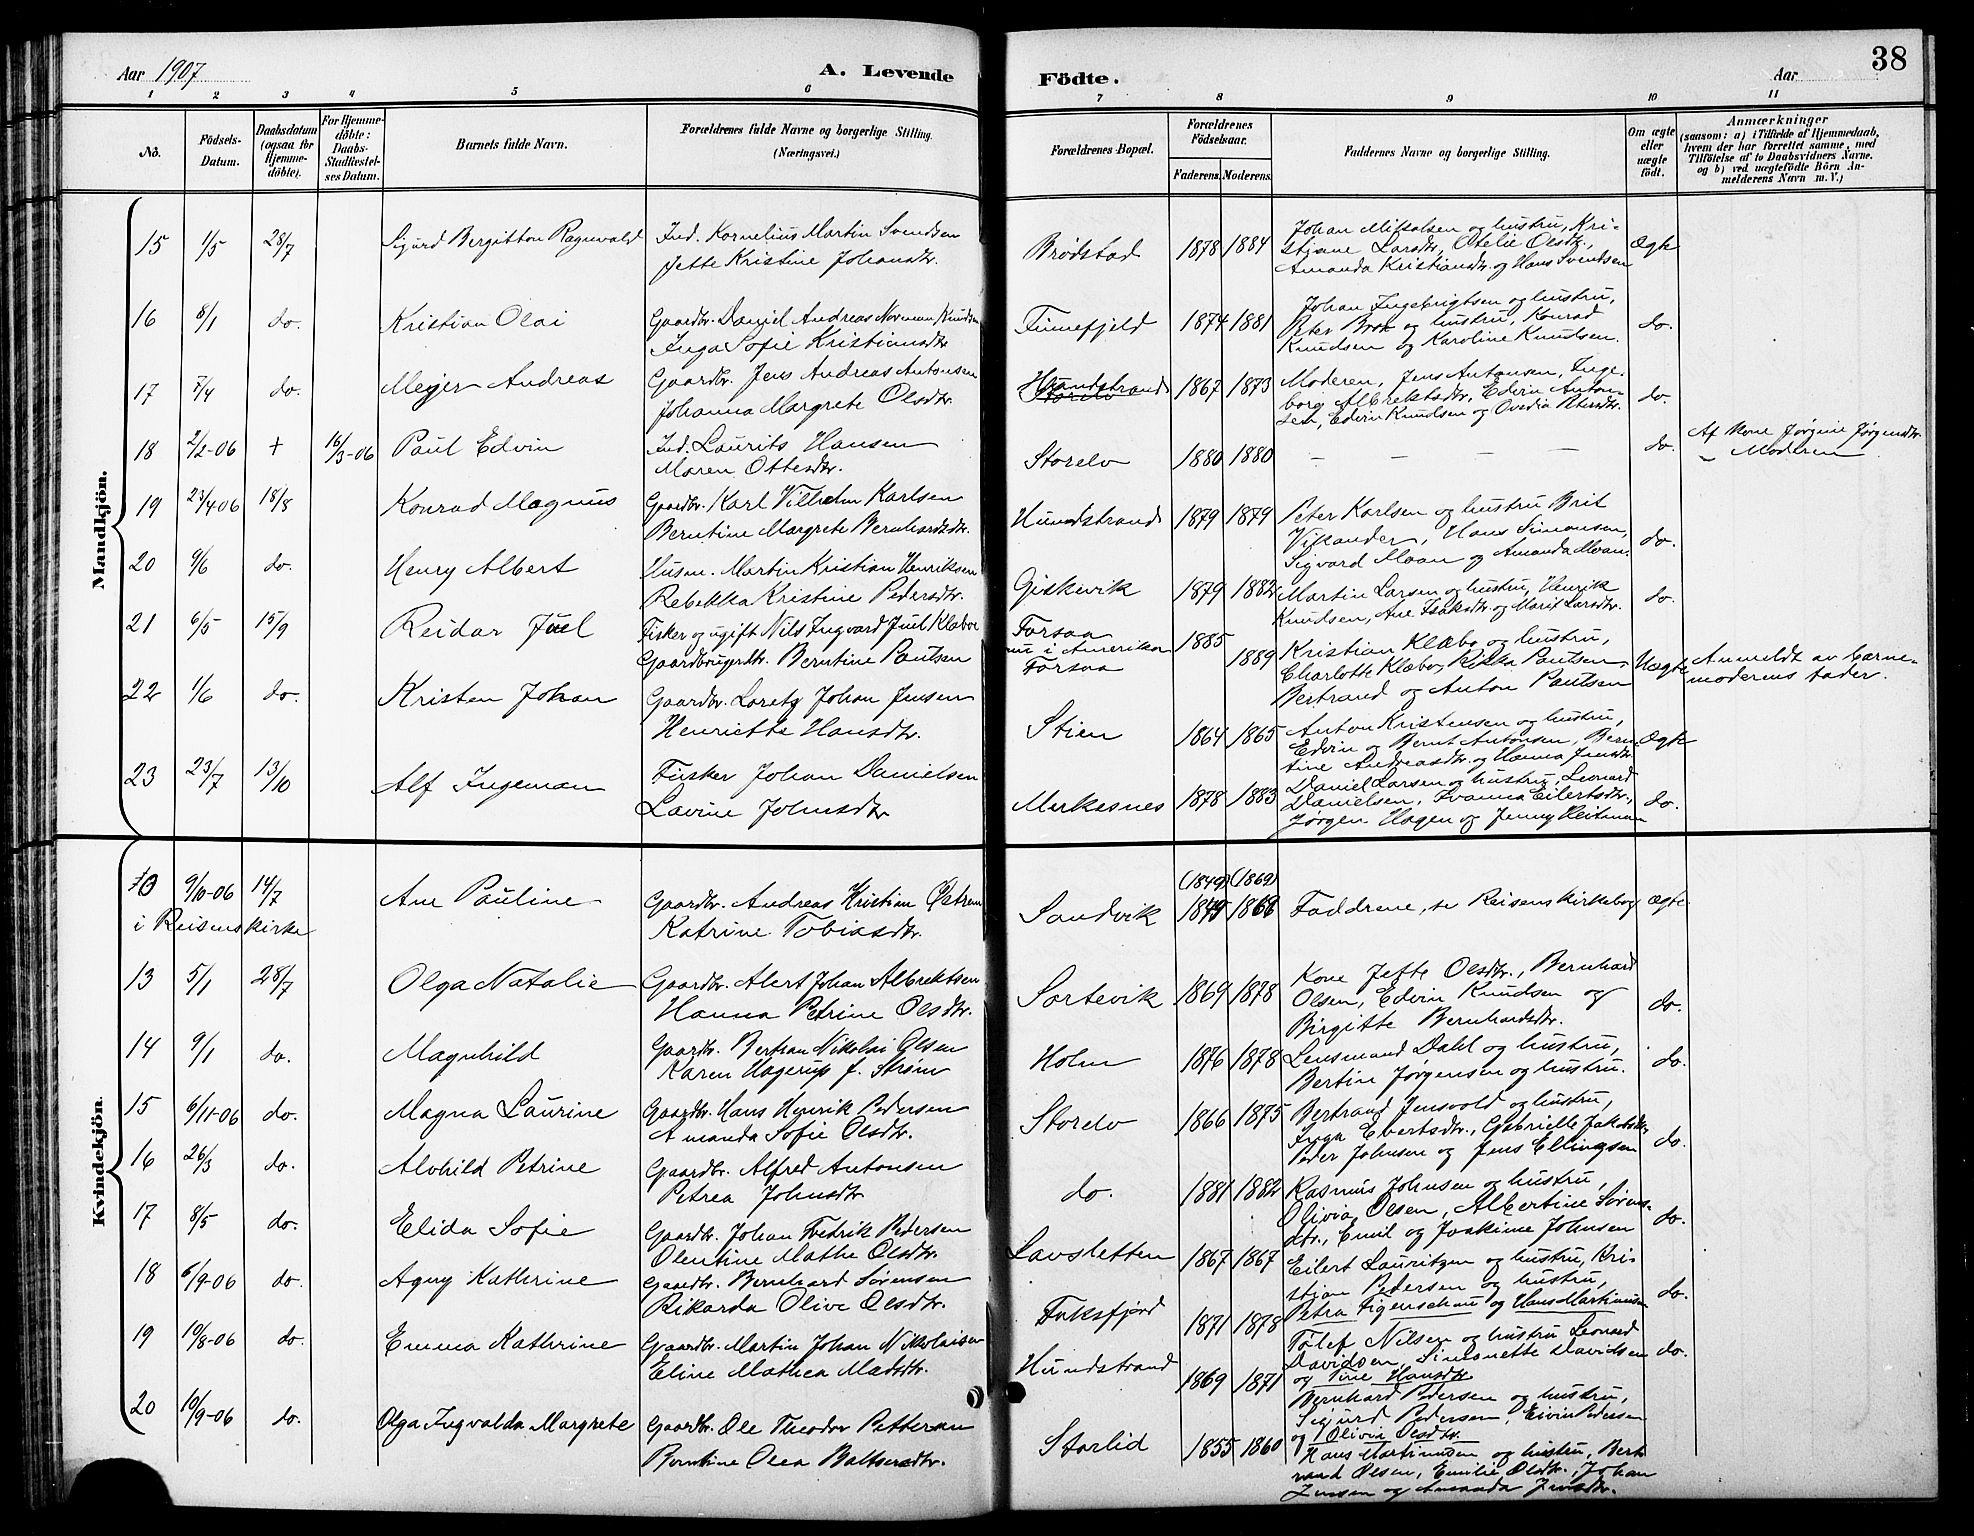 Aar 1907 A. Levende Födte. Aar 38
1 2 3 4 5 6 7 8 9 10 11
No.
Födsels-
Datum.
Daabsdatum
(ogsaa for
Hjemme-
döbte).
For Hjemme-
döbte:
Daabs-
Stadfæstel-
ses Datum.
Barnets fulde Navn.
Forældrenes fulde Navne og borgerlige Stilling.
(Næringsvei.)
Forældrenes Bopæl.
Forældrenes
Födselsaar.
Faderens. Moderens.
Faddernes Navne og borgerlige Stilling.
Om ægte
eller
uægte
födt.
Anmærkninger
(saasom: a) i Tilfælde af Hjemmedaab,
hvem der har forrettet samme, med
Tilföielse af to Daabsvidners Navne.
og b) ved uægtefödte Börn An-
melderens Navn m. V.)
Mandkjön.
15 1/5 28/7 Sigurd Bergitton Ragnvald Ind. Kornelius Martin Svendsen
Jette Kristine Johansdtr.
Brødstad 1878 1884 Johan Mikalsen og hustru, Kri-
stjane Larsdtr., Otelie Olsdtr.,
Amanda Kristiansdtr. og Hans Svendsen
Ægte
16 8/1 do. Kristian Olai Gaardbr. Daniel Andreas Norman Knudsen
Inga Sofie Kristiansdtr.
Finnefjeld 1874 1881 Johan Ingebrigtsen og hustru,
Peter Brox og hustru, Konrad
Knudsen og Karoline Knudsen.
do.
17 7/4 do. Meyer Andreas Gaardbr. Jens Andreas Antonsen
Johanna Margrete Olsdtr.
Hundstrand
Storelv
1867 1873 Moderen, Jens Antonsen, Inge-
borg Albrektsdtr., Edvin Anton-
sen, Edvin Knudsen og Ovedia Petersdtr.
do.
18 2/2-06 + 16/3-06 Paul Edvin Ind. Laurits Hansen
Maren Ottesdtr.
Storelv 1880 1880 – – – – do. Af Kone Jørgine Jørgensdtr.
– Moderen
19 23/4-06 18/8 Konrad Magnus Gaardbr. Karl Vilhelm Karlsen
Berntine Margrete Bernhardsdtr.
Hundstrand 1879 1879 Peter Karlsen og hustru Brit
Vikander, Hans Simonsen,
Sigvard Moan og Amanda Moan.
do.
20 9/6 do. Henry Albert Husm. Martin Kristian Henriksen
Rebekka Kristine Pedersdtr.
Giskevik 1879 1882 Martin Larsen og hustru, Henrik
Knudsen, Ane Isaksdtr. og Marit Larsdtr.
do.
21 6/5 15/9 Reidar Juel Fisker og ugift Nils Ingvard Juel Klæboe
Gaardbrugerdtr. Berntine Paulsen
Forsaa
nu i Amerika
Forsaa
1885
1889
Kristian Klæbo og hustru,
Charlotte Klæbo, Rikka Paulsen
Bertrand og Anton Paulsen
Uægte Anmeldt av barne-
moderens fader.
22 1/6 do. Kristen Johan Gaardbr. Loretz Johan Jensen
Henriette Hansdtr.
Stien 1864 1865 Anton Kristensen og hustru,
Edvin og Bernt Antonsen, Bern-
tine Andreasdtr. og Hanna Jensdtr.
Ægte
23 23/7 13/10 Alf Ingeman Fisker Johan Danielsen
Lavine Johnsdtr.
Merkesnes 1878 1883 Daniel Larsen og hustru, Leonard
Danielsen, Ivanna Eilertsdtr.,
Jørgen Hagen og Jenny Reitman
do.
Kvindekjön.
10 9/10-06 14/7 Ane Pauline Gaardbr. Andreas Kristian Østrem
i Reisens kirke Katrine Tobiasdtr.
Sandvik (1849) (1869)
1849 1869 Faddrene, se Reisens kirkebog ægte
13 5/1 28/7 Olga Natalie Gaardbr. Alert Johan Albrektsen
Hanna Petrine Olsdtr.
Sortevik 1869 1878 Kone Jette Olsdtr., Bernhard
Olsen, Edvin Knudsen og
Birgitte Bernhardsdtr.
do.
14 9/1 do. Magnhild Gaardbr. Bertran Nikolai Olsen
Karen Hagerup f. Strøm
Holm 1876 1878 Lensmand Dahl og hustru,
Bertin Jørgensen og hustru.
do.
15 6/11-06 do. Magna Laurine Gaardbr. Hans Henrik Pedersen
Amanda Sofie Olsdtr.
Storelv 1866 1875 Bertrand Jensvold og hustru,
Inga Ebertsdtr., Gabrielle Jakobsdtr.
Peder Johnsen og Jens Ellingsen
do.
16 26/3 do. Alvhild Petrine Gaardbr. Alfred Antonsen
Petrea Johnsdtr.
do. 1881 1882 Rasmus Johnsen og hustru,
Olivia Olsen, Albertine Sørens-
dtr., Emil og Joakime Johnsen
do.
17 8/5 do. Elida Sofie Gaardbr. Johan Fredrik Pedersen
Olentine Mathe Olsdtr.
Lavsletten 1867 1867 Eilert Lauritzen og hustru, Kri-
stjan Pedersen og hustru,
Petra Figenschau og Hans Martinusen
do.
18 6/9-06 do. Agny Kathrine Gaardbr. Bernhard Sørensen
Rikarda Olive Olsdtr.
Faksfjord 1871 1878 Tølef Nilsen og hustru Leonard
Davidsen, Simonette Davidsen
og Tine Hansdtr.
do.
19 10/8-06 do. Emma Kathrine Gaardbr. Martin Johan Nikolaisen
Eline Mathea Madsdtr.
Hundstrand 1869 1871 Bernhard Pedersen og hustru,
Sigurd Pedersen, Eivin Pedersen
og Olivia Olsdtr.
20 10/9-06 do. Olga Ingvalda Margrete Gaardbr. Ole Theodor Pettersen
Berntine Olea Baltsersdtr.
Storlid 1855 1860 Hans Martinusen og hustru, Bert-
rand Olsen, Emilie Olsdtr., Johan
Jensen og Amanda Jensdtr.